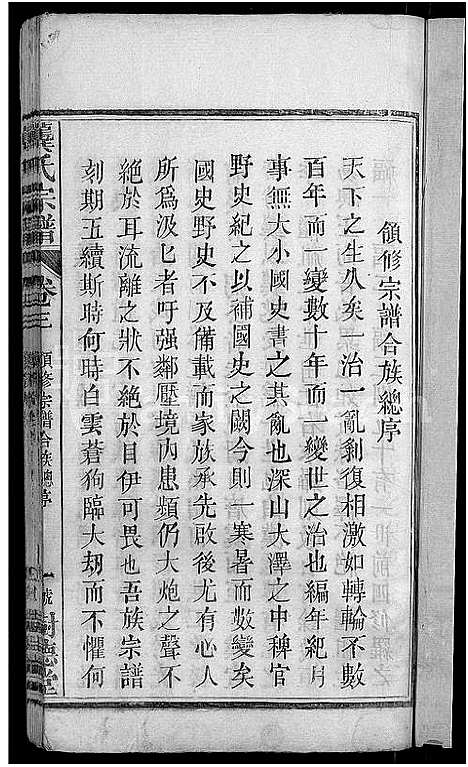 領修宗譜合族總序
天下之生久矣一治一亂剝復相激如轉輪不數
百年而一變數十年而一變世之治也編年紀月
事無大小國史書之其亂也深山大澤之中稗官
野史紀之以補國史之闕今則一寒暑而數變矣
國史野史不及備載而家族承先啟後尤有心人
所為汲匕者吁强鄰壓境內患頻仍大炮之聲不
絶於耳流離之狀不絶於目伊可畏也吾族宗譜
刻期五續斯時何時白雲蒼狗臨大刼而不懼何
龔氏宗譜
卷三
領修宗譜合族總序
一號